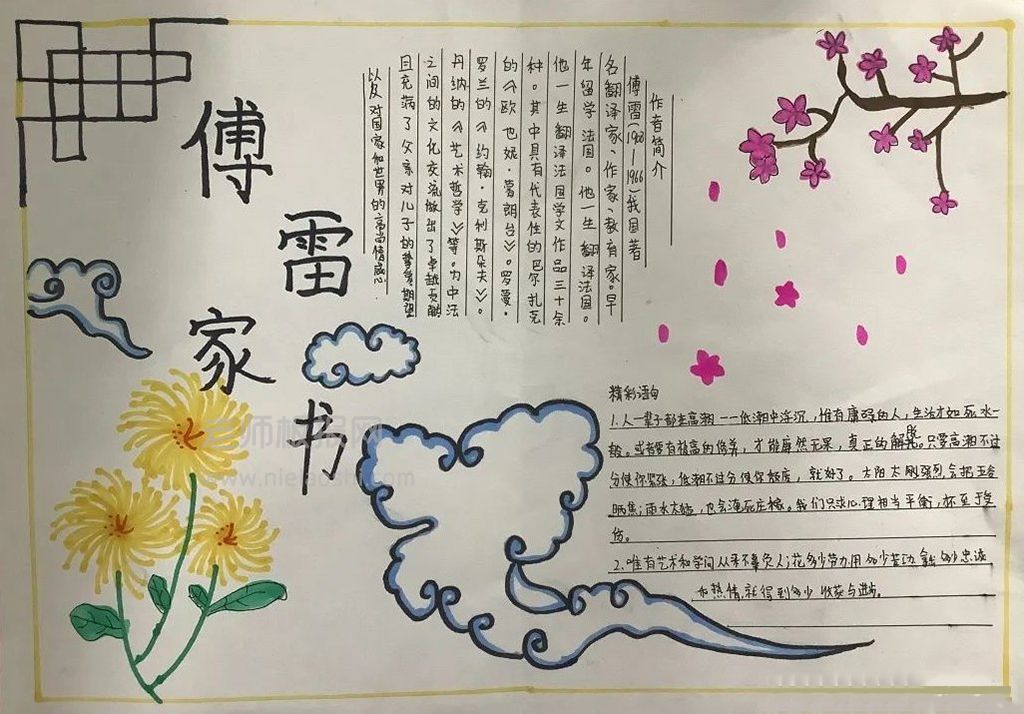 傅雷家书
作者简介
傅雷(1908—1966)我国著
名翻译家、作家、教育家。早
年留学法国。他一生翻译法国。
他一生翻译法国学文作品三十余
种。其中具有代表性的巴尔扎克
的《欧也妮·葛朗台》。罗曼·
罗兰的《约翰·克利斯朵夫》。
丹纳的《艺术哲学》等。为中法
之间的文化交流做出了卓越贡献
且充满了父亲对儿子的挚爱期望
以及对国家和世界的高尚情感心
精彩语句
1.人一辈子都在高潮——低潮中浮沉,惟有庸碌的人,生活才如死水一
般。或者要有极高的修养,才能廓然无累,真正的解脱。只要高潮不过
分使你紧张,低潮不过分使你颓废,就好了。太阳太强烈,会把五谷
晒焦;雨水太猛,也会淹死庄稼。我们只求心理相当平衡,不至于受
伤。
2.唯有艺术和学问从来不辜负人;花多少劳力,用多少苦功,拿多少忠诚
和热情,就得到多少收获与进步。
www.nielaoshi.com